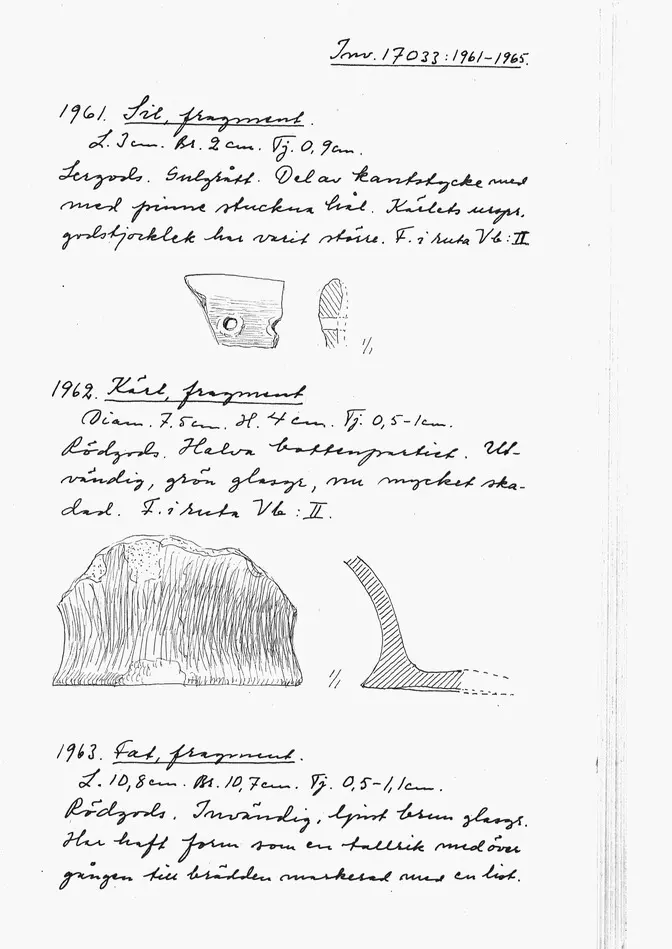 Inv. 17033:1961-1965.
1961. Sil, fragment.
L. 3cm. Br. 2cm. Tj. 0,9cm.
Lergods. Gulgrått. Del av kantstycke med
med pinne stuckna hål. Kärlets urspr.
godstjocklek har varit större. F. i ruta Vb:II
1/1
1962. Kärl, fragment
Diam. 7,5cm. H. 4cm. Tj. 0,5-1cm.
Rödgods. Halva bottenpartiet. Ut-
vändig, grön glasyr, nu mycket ska-
dad. F. i ruta Vb:II.
1/1
1963. Fat, fragment.
L. 10,8cm. Br. 10,7cm. Tj. 0,5-1,1cm.
Rödgods. Invändig, ljust brun glasyr.
Har haft form som en tallrik med över
gången till brädden markerad med en list.